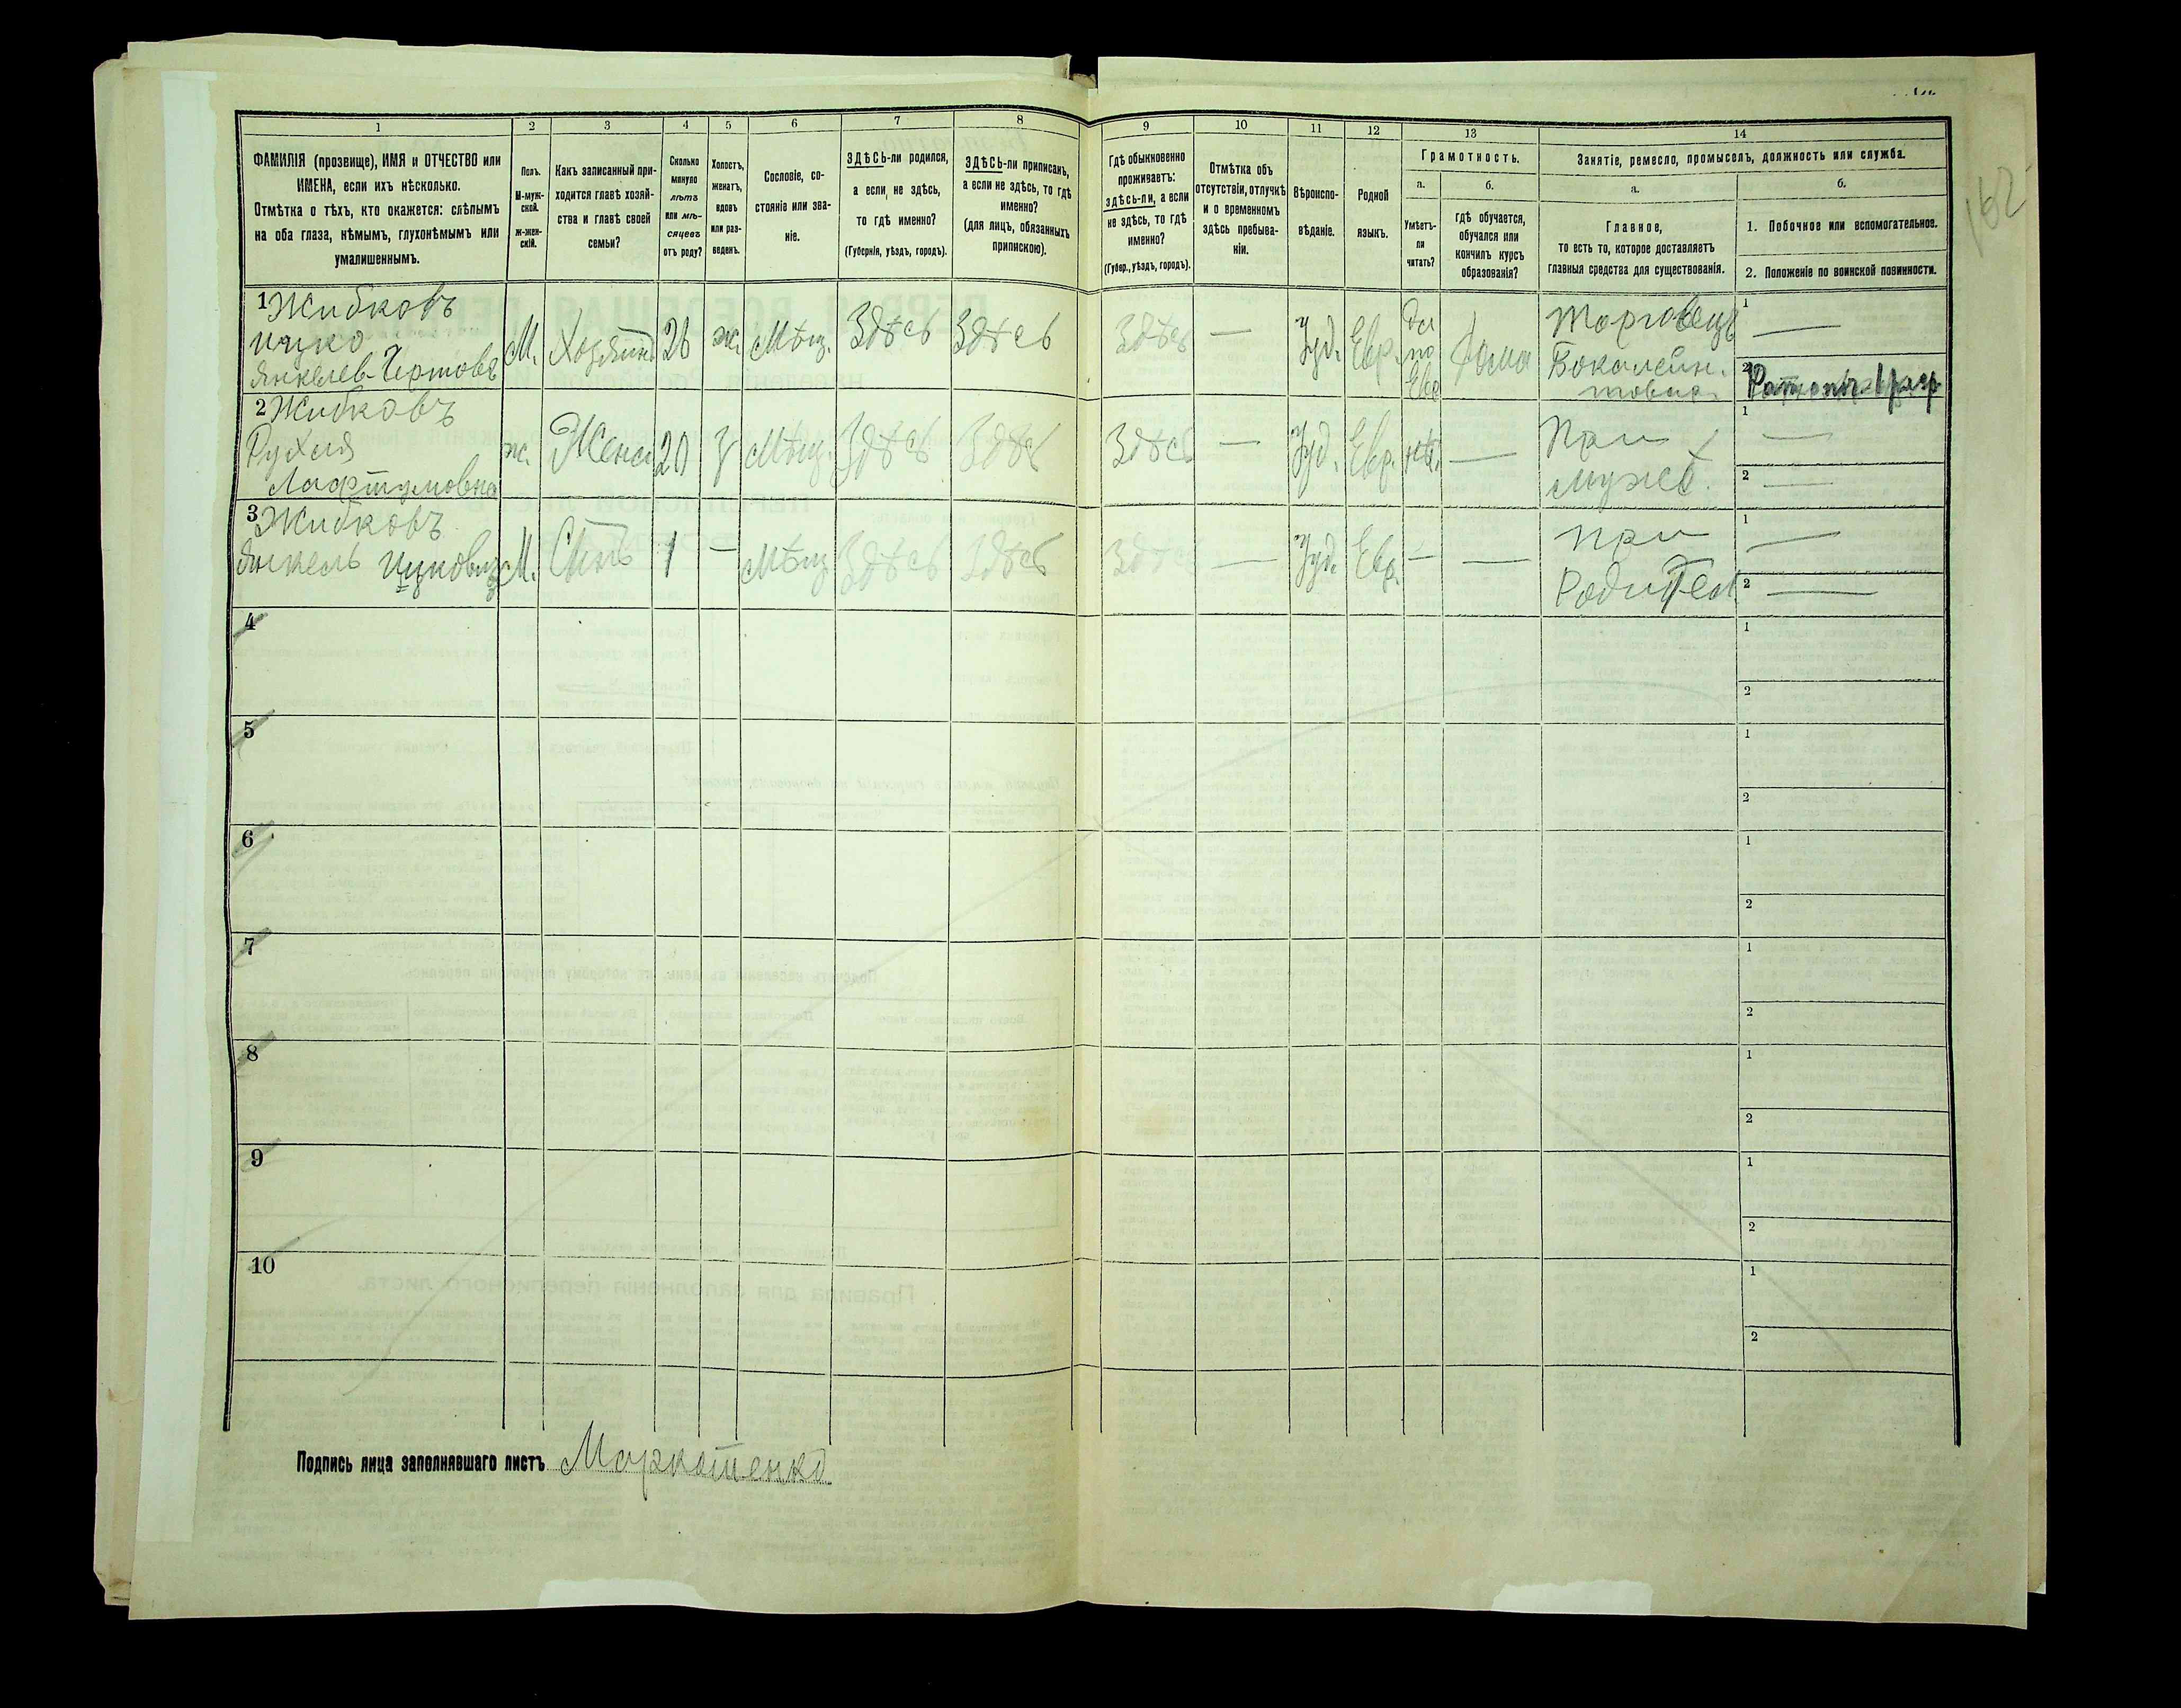 1 2 3 4 5 6 7 8 9 10 11 12 13 14
ФАМИЛІЯ (прозвище), ИМЯ и ОТЧЕСТВО или
ИМЕНА, если ихъ нѣсколько.
Отмѣтка о тѣхъ, кто окажется: слѣпымъ
на оба глаза, нѣмымъ, глухонѣмымъ или
умалишеннымъ.
Полъ.
М-муж-
ской.
Ж-жен-
скій.
Какъ записанный при-
ходится главѣ хозяй-
ства и главѣ своей
семьи?
Сколько
минуло
лѣтъ
или мѣ-
сяцевъ
отъ роду?
Холостъ,
женатъ,
вдовъ
или раз-
веденъ.
Сословіе, со-
стояніе или зва-
ніе.
ЗДѢСЬ-ли родился,
а если не здѣсь,
то гдѣ именно?
(Губернія, уѣздъ, городъ).
ЗДѢСЬ-ли приписанъ,
а если не здѣсь, то гдѣ
именно?
(для лицъ, обязанныхъ
припискою).
Гдѣ обыкновенно
проживаетъ:
здѣсь-ли, а если
не здѣсь, то гдѣ
именно?
(Губер., уѣздъ, городъ).
Отмѣтка объ
отсутствіи, отлучкѣ
и о временномъ
здѣсь пребыва-
ніи.
Вѣроиспо-
вѣданіе.
Родной
языкъ.
Грамотность.
а.
Умѣетъ-
ли
читать?
б.
гдѣ обучается,
обучался или
кончилъ курсъ
образованія?
Занятіе, ремесло, промыселъ, должность или служба.
а.
Главное,
то есть то, которое доставляетъ
главныя средства для существованія.
б.
1. Побочное или вспомогательное.
2. Положеніе по воинской повинности.
162
1 Жибковъ
Ицко
Янкелев-
М. Хозяинъ ж. Мѣщ. Здѣсь Здѣсь Здѣсь — Іуд. Евр.
да
по
Евр
дома
Торговецъ
Бокалейн.
товар.
1 —
2
2 Жибковъ
Рухля
ж. Жена 20 З Мѣщ. Здѣсь Здѣсь Здѣсь — Іуд. Евр. нѣт. —
При
мужѣ.
1 —
2 —
3 Жибковъ
Янкель Ицковъ
М. Сынъ 1 — Мѣщ. Здѣсь Здѣсь Здѣсь — Іуд. Евр. — —
При
Родител
1 —
2 —
4 1
2
5 1
2
6 1
2
7 1
2
8 1
2
9 1
2
10 1
2
Подпись лица заполнявшаго листъ Маркатенко